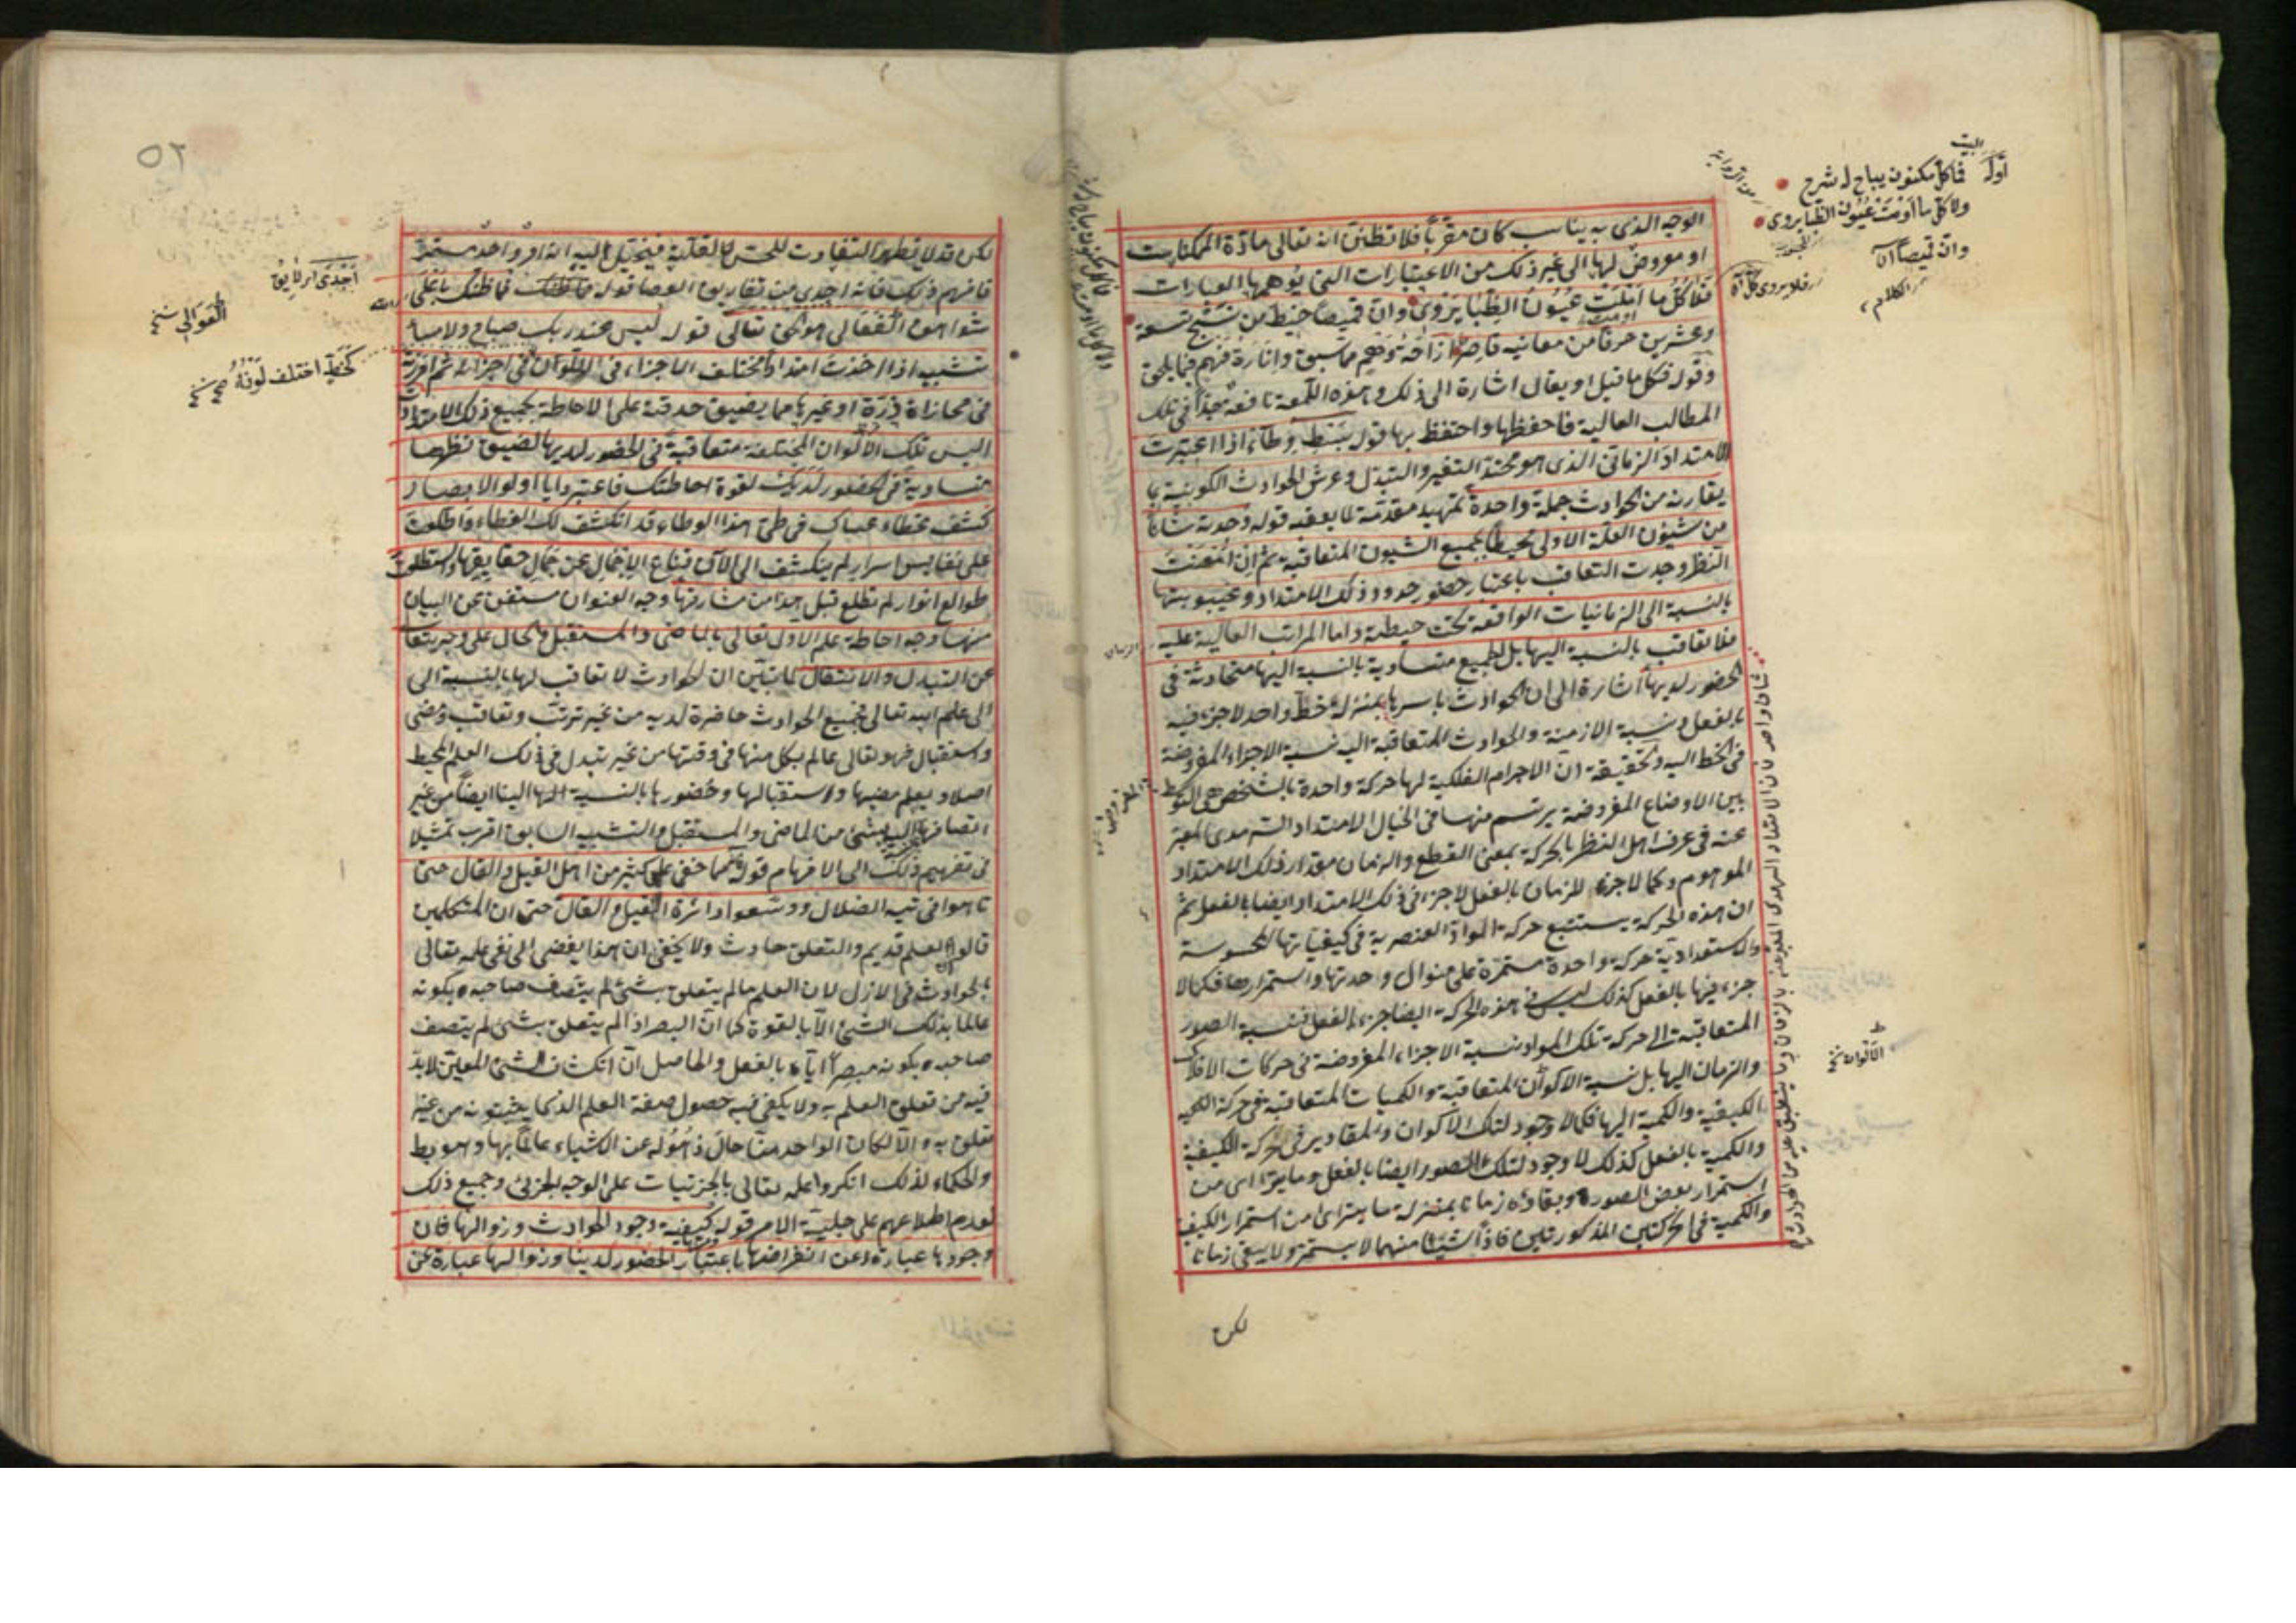 البيت
أوله فما كل مكنون يباح له شرح
ولا كل ما أومت عيون الظبا يروى
وان قميصا
الوجه الذى به يناسب كان مقربا فلا تظنن انه تعالى مادة الممكنات
او معروض لها الى غير ذلك من الاعتبارات التى يوهمها العبارات
فلا كل ما املت عيون الظبا يروى وان قميصا خيط من نسج تسعة
وعشرين حرفا من معانيه قاصر ازاحة توهم مما سبق وانارة فهم فيما يلحق
وقوله فكل ما قيل او يقال اشارة الى ذلك وهذه اللمعة نافعة جدا فى تلك
المطالب العالية فاحفظها واحتفظ بها قوله بسط وطاء اذا اعتبرت
الامتداد الزمانى الذى هو محتد التغير والتبدل وعرش الحوادث الكونية بما
يقارنه من الحوادث جملة واحدة تمهيد مقدمة لما يعقبه قوله وجدته شانا
من شئون العلة الاولى محيطا بجميع الشيون المتعاقبة ثم ان امعنت
النظر وجدت التعاقب باعتبار حضور حدود ذلك الامتداد وغيبوبتها
بالنسبة الى الزمانيات الواقعة تحت حيطته واما المراتب العالية عليه
فلا تعاقب بالنسبة اليها بل الجميع متساوية بالنسبة اليها متحاذية فى
الحضور لديها اشارة الى ان الحوادث باسرها بمنزلة خط واحد لا جزء فيه
بالفعل ونسبة الازمنة والحوادث المتعاقبة اليه نسبة الاجزاء المفروضة
فى الخط اليه وتحقيقه ان الاجرام الفلكية لها حركة واحدة بالشخص هى التوسط
بين الاوضاع المفروضة يرتسم منها فى الخيال الامتداد السرمدى المعبر
عنه فى عرف اهل النظر بالحركة بمعنى القطع والزمان مقدار ذلك الامتداد
الموهوم وكما لا جزء للزمان بالفعل لا جزء فى ذلك الامتداد ايضا بالفعل ثم
ان هذه الحركة يستتبع حركة المواد العنصرية فى كيفياتها المحسوسة
والاستعدادية حركة واحدة مستمرة على منوال وحدتها واستمرارها فكما لا
جزء فيها بالفعل كذلك ليس فى هذه الحركة ايضا جزء بالفعل فنسبة الصور
المتعاقبة الى حركة تلك المواد نسبة الاجزاء المفروضة فى حركات الافلاك
والزمان اليها بل نسبة الاكوان المتعاقبة والكميات المتعاقبة فى حركة
الكيفية والكمية اليها فكما لا وجود لتلك الاكوان والمقادير فى الحركة الكيفية
والكمية بالفعل كذلك لا وجود لتلك الصور ايضا بالفعل وما يترااى من
استمرار بعض الصور وبقاؤه زمانا بمنزلة ما يترااى من استمرار الكيف
والكمية فى الحركتين المذكورتين فاذا شيئا منهما لا يستمر ولا يبقى زمانا
الاكوان نخ
لكن
٥٢
لكن قد لا يظهر التفاوت للحس لقلته فيتخيل اليه انه امر واحد مستمر
فافهم ذلك فانه اجدى من تفاريق العصا قوله فما ظنك فما ظنك باعلى
شواهق العوالى هو الحق تعالى قوله ليس عند ربك صباح ولا مساء
تشبيه اذا اخذت امتدادا مختلف الاجزاء فى الالوان فى اجزائه ثم امررته
فى محاذاة ذرة او غيرها مما يضيق حدقته على الاحاطة بجميع ذلك الامتداد
اليس تلك الالوان المختلفة متعاقبة فى الحضور لديها لضيق نظرها
متساوية فى الحضور لديك لقوة احاطتك فاعتبروا يا اولو الابصار
كشف غطاء عساك فى طى هذا الوطاء قد انكشف لك الغطاء واطلعت
على نفايس اسرار لم ينكشف الى الآن قناع الاجمال عن جمال حقايقها واستطلعت
طوالع انوار لم تطلع قبل هذا من مشارقها وجه العنوان مستغن عن البيان
منها وجه احاطة علم الاول تعالى بالماضى والمستقبل والحال على وجه يتعالى
عن التبدل والانتقال كما تبين ان الحوادث لا تعاقب لها بالنسبة الى
الى علم الله تعالى فجميع الحوادث حاضرة لديه من غير ترتب وتعاقب ومضى
واستقبال فهو تعالى عالم بكل منها فى وقتها من غير تبدل فى ذلك العلم المحيط
اصلا ويعلم مضيها واستقبالها وحضورها بالنسبة الينا ايضا من غير
اتصافها لديه بشئ من الماضى والمستقبل والتشبيه السابق اقرب تمثيلا
فى تفهيم ذلك الى الافهام قوله مما خفى على كثير من اهل القيل والقال حتى
تاهوا فى تيه الضلال ووسعوا دائرة القيل والقال حتى ان المتكلمين
قالوا العلم قديم والتعلق حادث ولا يخفى ان هذا يفضى الى نفى علمه تعالى
بالحوادث فى الازل لان العلم ما لم يتعلق بشئ لم يتصف صاحبه بكونه
عالما بذلك الشئ الا بالقوة كما ان البصر اذا لم يتعلق بشئ لم يتصف
صاحبه بكونه مبصرا اياه بالفعل والحاصل ان انكشاف الشئ المعين لا بد
فيه من تعلق العلم به ولا يكفى فيه حصول صفة العلم الذى يثبتونه من غير
تعلق به والا لكان الواحد منا حال ذهوله عن الاشياء عالما بها وهو بط
والحكماء لذلك انكروا علمه تعالى بالجزئيات على الوجه الجزئى وجميع ذلك
لعدم اطلاعهم على جلية الامر قوله كيفية وجود الحوادث وزوالها فان
وجودها عبارة عن انقراضها باعتبار الحضور لدينا وزوالها عبارة عن
العوالى نسخ
كخيط اختلف لونه صح نسخ